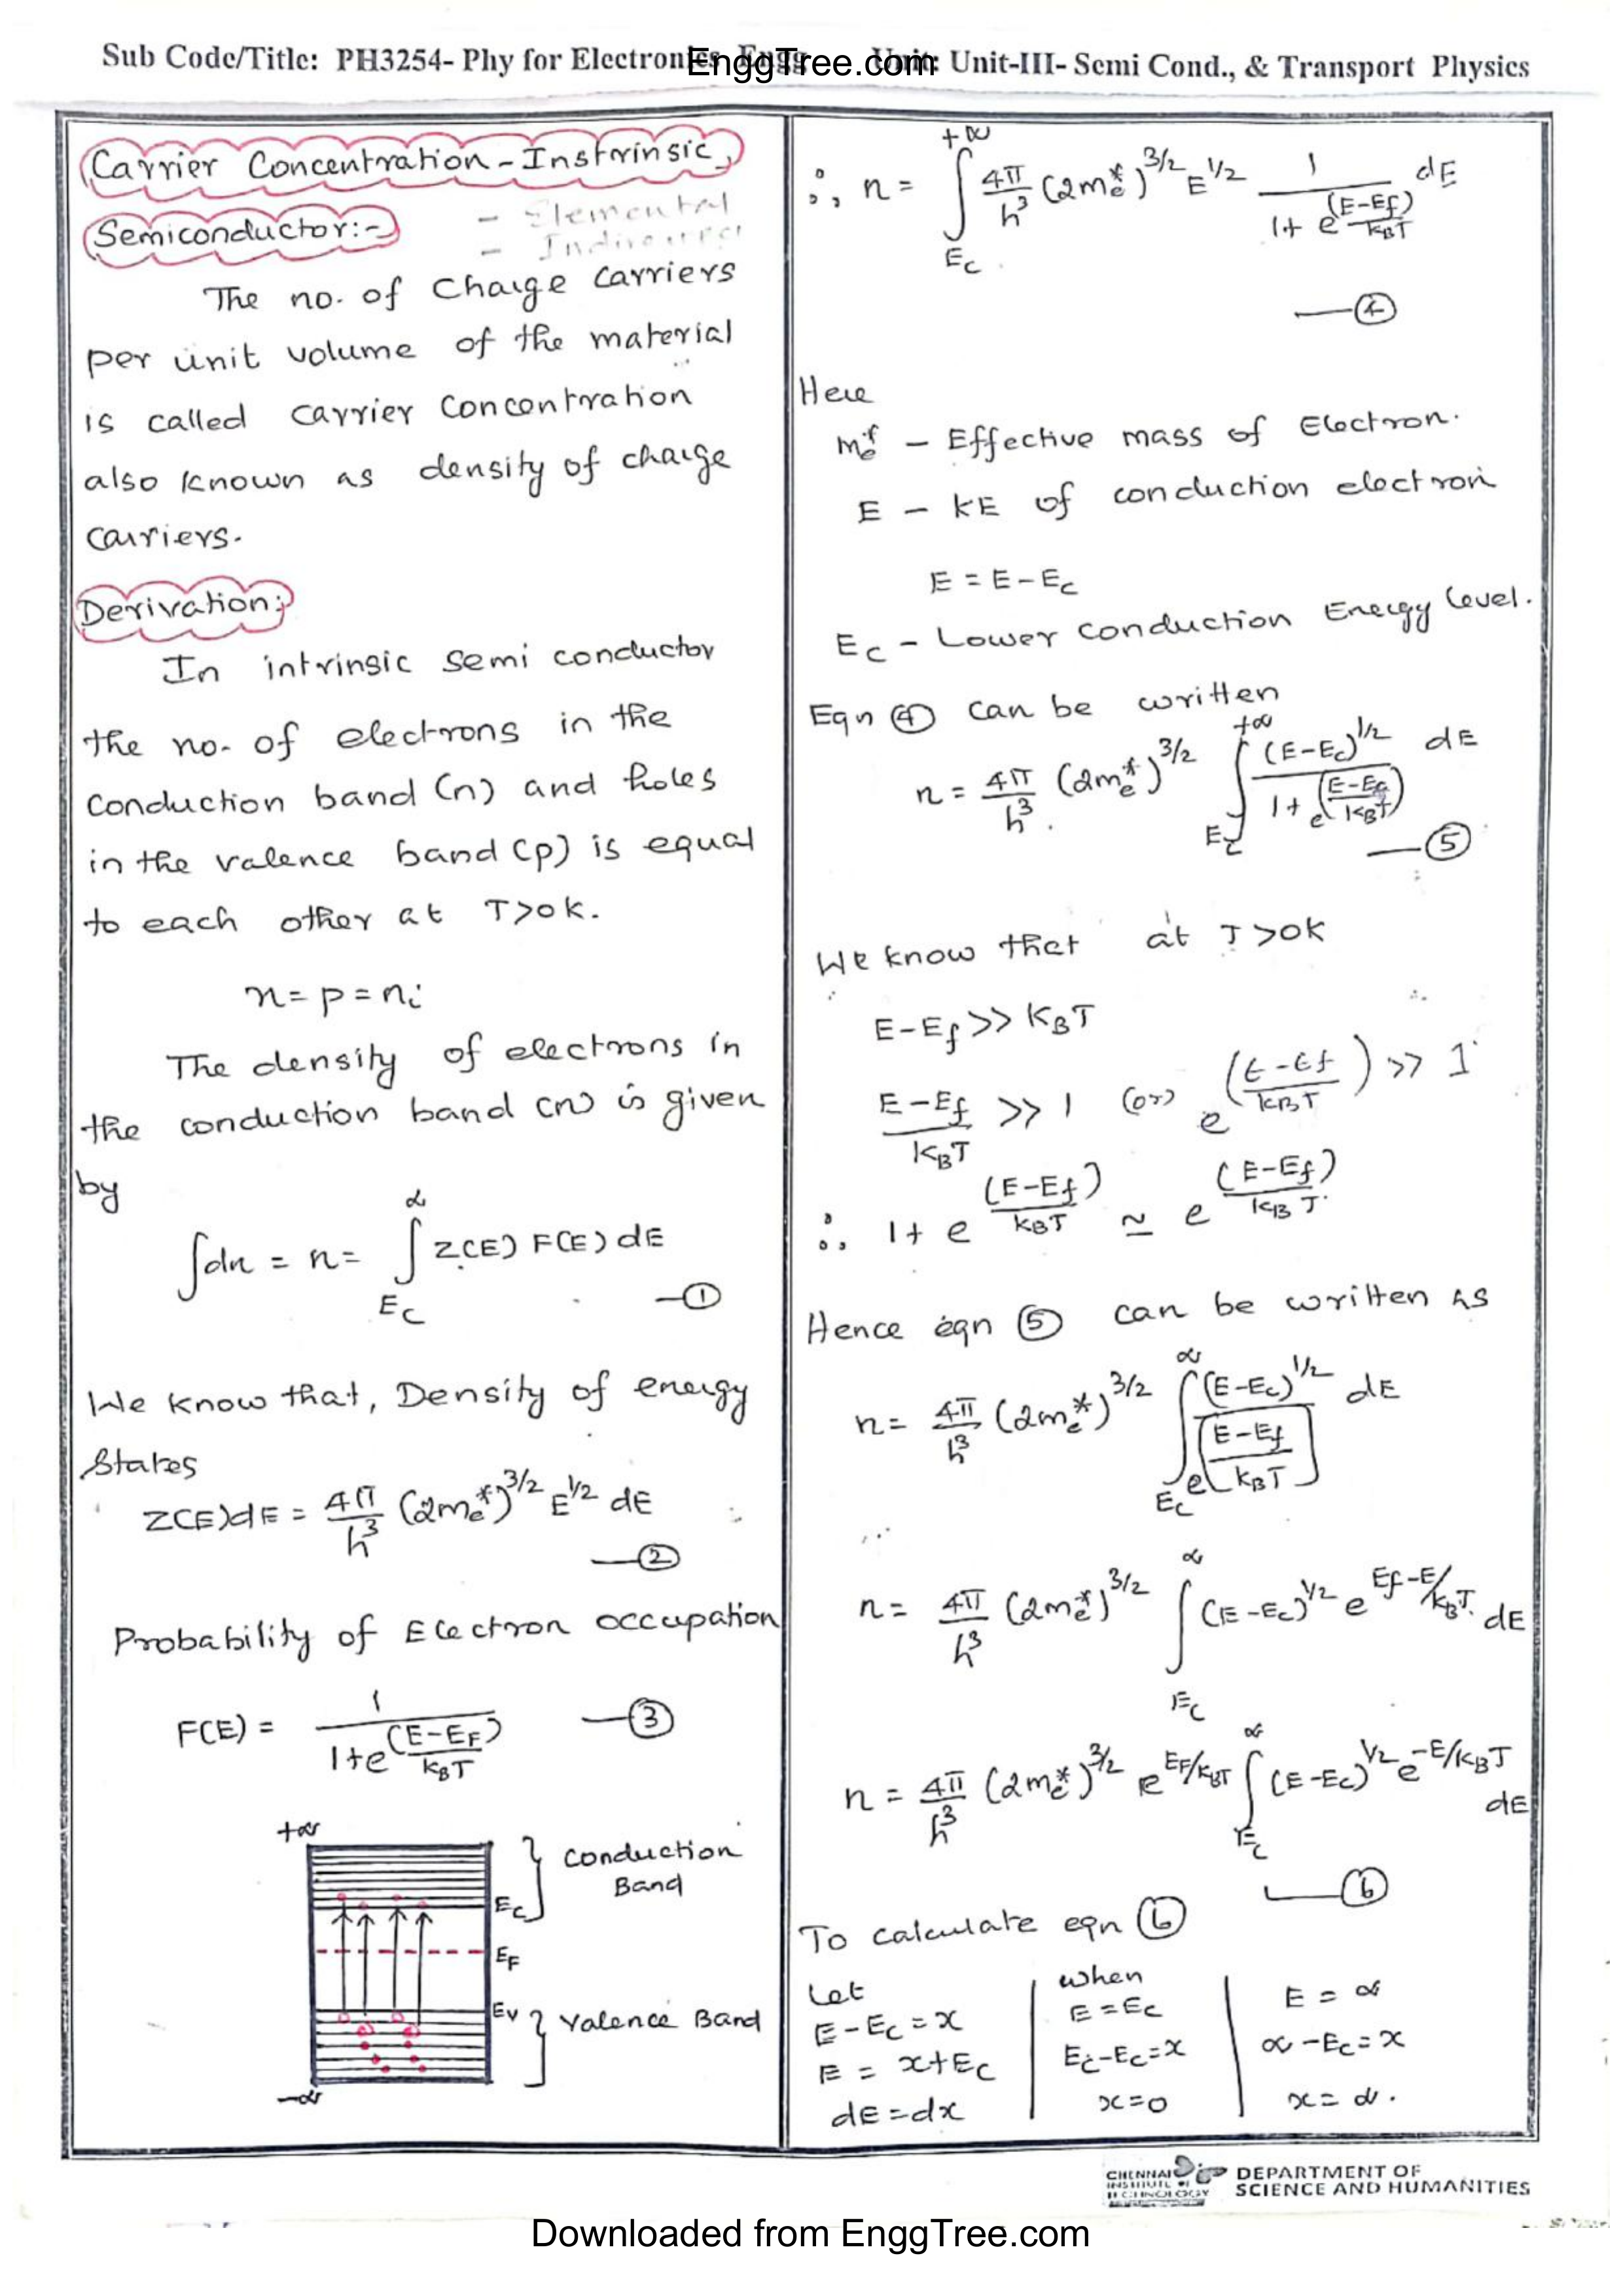 Sub Code/Title: PH3254- Phy for Electronics Engg Unit: Unit-III- Semi Cond., & Transport Physics
EnggTree.com
Carrier Concentration - Instrinsic
Semiconductor:-
- Elemental
The no. of Charge Carriers
per unit volume of the material
is called Carrier Concentration
also known as density of charge
carriers.
Derivation:
In intrinsic semi conductor
the no. of electrons in the
conduction band (n) and holes
in the valence band (p) is equal
to each other at T>0K.
n = p = ni
The density of electrons in
the conduction band (n) is given
by
∫dn = n = ∫_{Ec}^{∞} Z(E) F(E) dE —①
We know that, Density of energy
States
Z(E)dE = 4π/h³ (2me*)^3/2 E^1/2 dE
—②
Probability of Electron occupation
F(E) = 1/(1+e^((E-EF)/kBT)) —③
+∞
Conduction
Band
Ec
EF
Ev
Valence Band
-∞
∴ n = ∫_{Ec}^{+∞} 4π/h³ (2me*)^3/2 E^1/2 1/(1+e^((E-Ef)/kBT)) dE
—④
Here
me* - Effective mass of Electron.
E - KE of conduction electron
E = E-Ec
Ec - Lower Conduction Energy Level.
Eqn ④ can be written
n = 4π/h³ (2me*)^3/2 ∫_{Ec}^{+∞} (E-Ec)^1/2 / (1+e^((E-Ef)/kBT)) dE
—⑤
We know that at T>0K
E-Ef >> KBT
(E-Ef)/KBT >> 1 (or) e^((E-Ef)/KBT) >> 1
∴ 1+e^((E-Ef)/KBT) ≃ e^((E-Ef)/KBT)
Hence eqn ⑤ can be written as
n = 4π/h³ (2me*)^3/2 ∫_{Ec}^{∞} (E-Ec)^1/2 / e^((E-Ef)/KBT) dE
n = 4π/h³ (2me*)^3/2 ∫_{Ec}^{∞} (E-Ec)^1/2 e^(Ef-E/KBT) dE
n = 4π/h³ (2me*)^3/2 e^(EF/KBT) ∫_{Ec}^{∞} (E-Ec)^1/2 e^(-E/KBT) dE
—⑥
To calculate eqn ⑥
Let
E-Ec = x
E = x+Ec
dE = dx
when
E = Ec
Ec-Ec = x
x=0
E = ∞
∞-Ec = x
x = ∞.
CHENNAI
INSTITUTE OF
TECHNOLOGY
DEPARTMENT OF
SCIENCE AND HUMANITIES
Downloaded from EnggTree.com